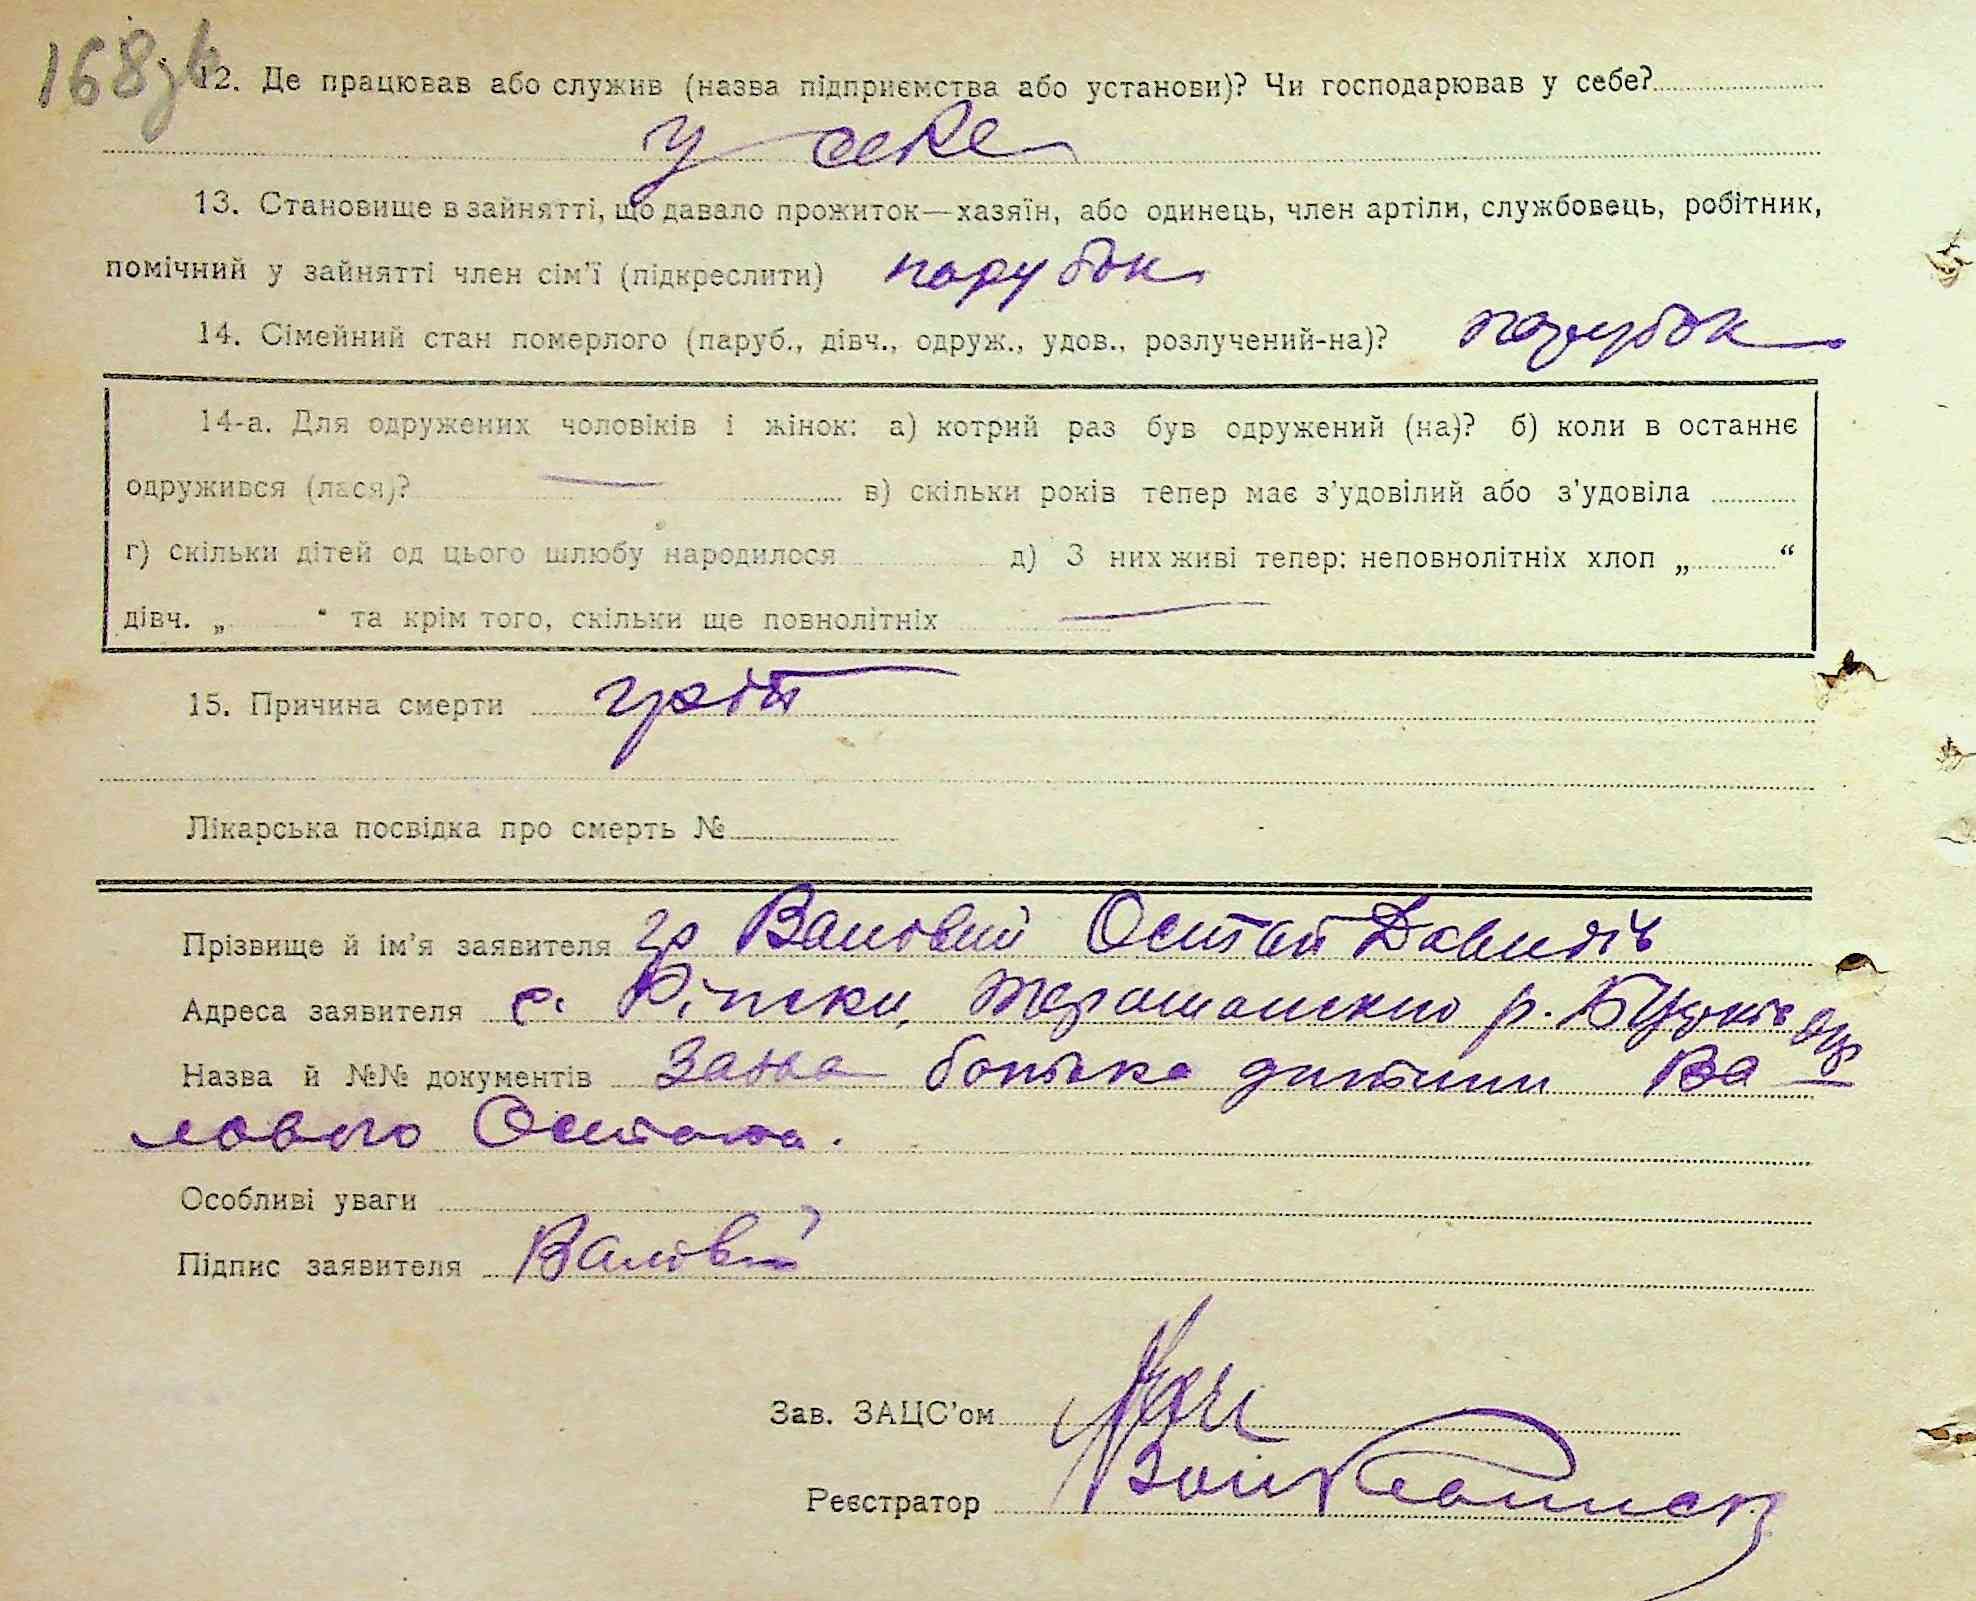 168зв
12. Де працював або служив (назва підприємства або установи)? Чи господарював у себе?
у себе
13. Становище в зайнятті, що давало прожиток—хазяїн, або одинець, член артіли, службовець, робітник,
помічний у зайнятті член сім'ї (підкреслити) парубок
14. Сімейний стан померлого (паруб., дівч., одруж., удов., розлучений-на)? парубок
14-а. Для одружених чоловіків і жінок: а) котрий раз був одружений (на)? б) коли в останнє
одружився (лася)? — в) скільки років тепер має з'удовілий або з'удовіла
г) скільки дітей од цього шлюбу народилося д) З них живі тепер: неповнолітніх хлоп „ “
дівч. „ “ та крім того, скільки ще повнолітніх —
15. Причина смерти гріп
Лікарська посвідка про смерть №
Прізвище й ім'я заявителя гр Валовий Остап Давидів
Адреса заявителя с. Ріпки, р.
Назва й №№ документів Заява батька дитини Ва
лового Остапа.
Особливі уваги
Підпис заявителя Валовий
Зав. ЗАЦС'ом
Реєстратор